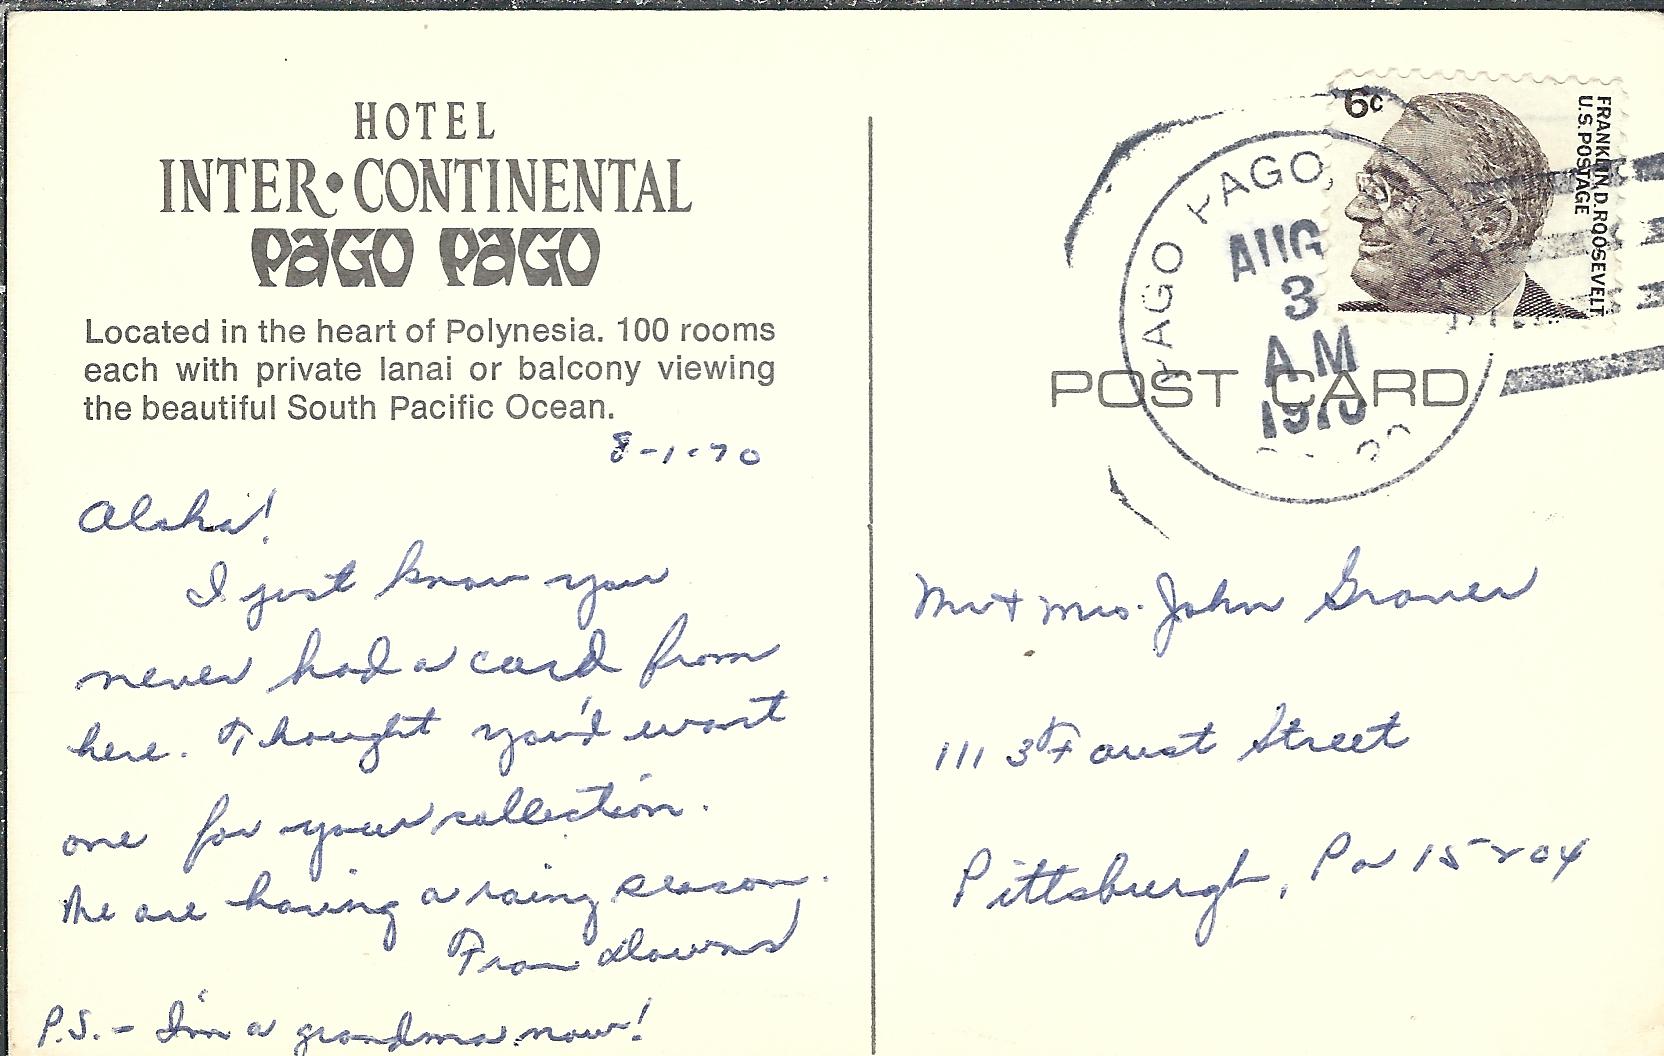 HOTEL
INTER•CONTINENTAL
PAGO PAGO
Located in the heart of Polynesia. 100 rooms
each with private lanai or balcony viewing
the beautiful South Pacific Ocean.
8-1-70
Aloha!
I just know you
never had a card from
here. Thought you'd want
one for your collection.
We are having a rainy season.
Fran Downs
P.S. - I'm a grandma now!
6c
FRANKLIN D. ROOSEVELT
U.S. POSTAGE
PAGO PAGO,
AUG
3
AM
1970
POST CARD
Mr + Mrs. John Graner
1113 Faust Street
Pittsburgh, Pa 15204